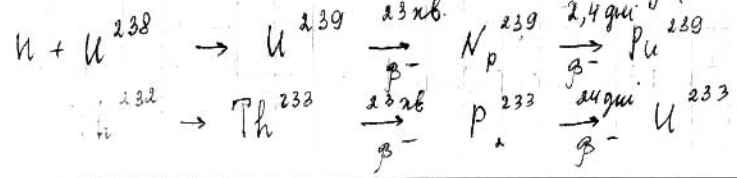 n + U²³⁸ → U²³⁹ 23 хв. → β⁻ Np²³⁹ 2,4 дні → β⁻ Pu²³⁹
²³² → Th²³³ 23 хв → β⁻ Pa²³³ 24 дні → β⁻ U²³³